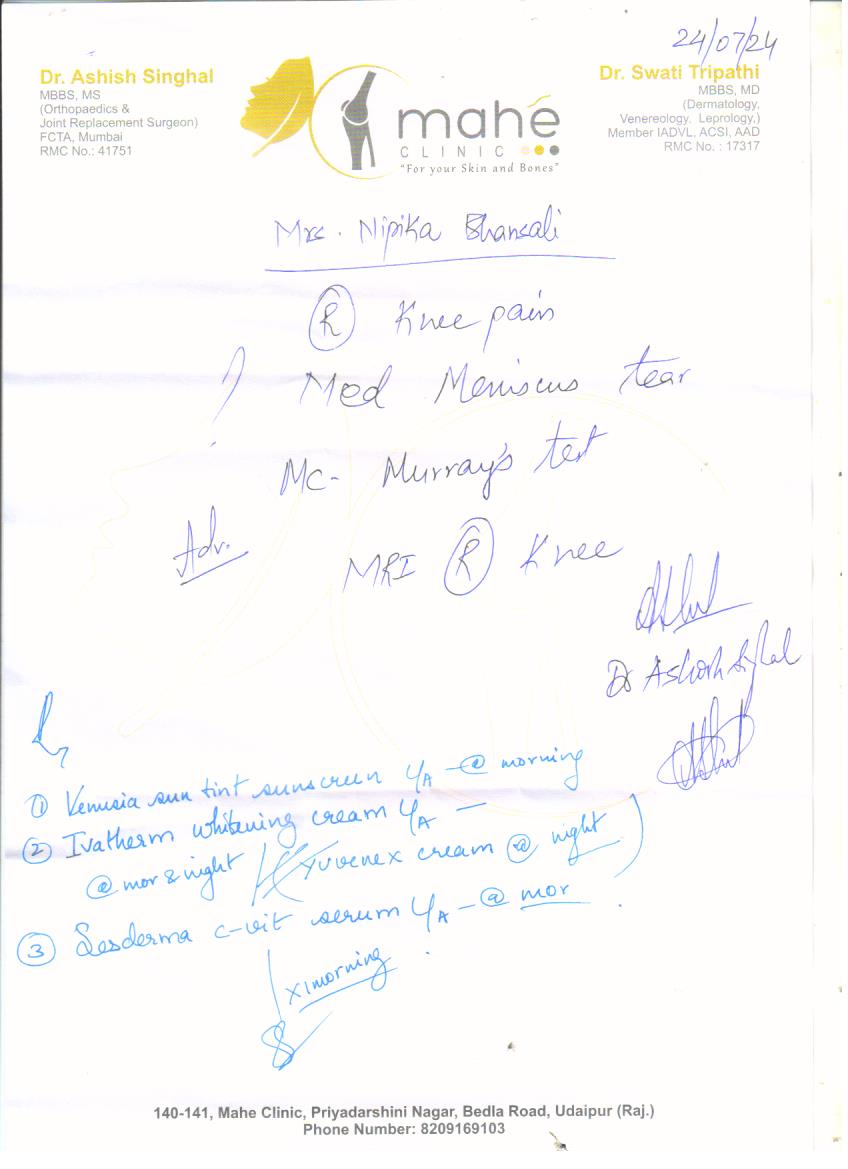 24/07/24
Dr. Ashish Singhal
MBBS, MS
(Orthopaedics &
Joint Replacement Surgeon)
FCTA, Mumbai
RMC No.: 41751
mahé
CLINIC
"For your Skin and Bones"
Dr. Swati Tripathi
MBBS, MD
(Dermatology,
Venereology, Leprology,)
Member IADVL, ACSI, AAD
RMC No. : 17317
Mrs. Nipika Bhansali
(R) Knee pain
? Med Meniscus tear
Mc- Murray's test
Adv. MRI (R) Knee
Dr Ashish Singhal
① Venusia sun tint sunscreen L/A - @ morning
② Ivatherm whitening cream L/A -
@ mor & night / (Yuvenex cream @ night)
③ Sesderma c-vit serum L/A - @ mor
x1morning
140-141, Mahe Clinic, Priyadarshini Nagar, Bedla Road, Udaipur (Raj.)
Phone Number: 8209169103